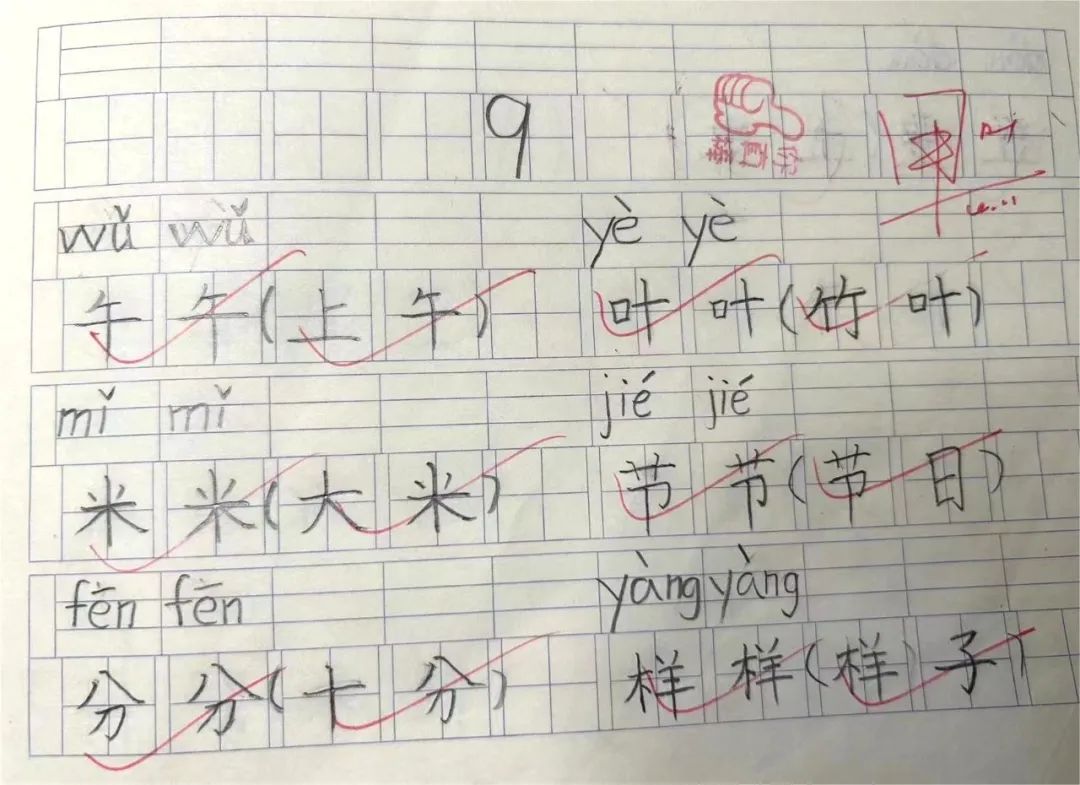 9
wǔ wǔ yè yè
午 午(上 午) 叶 叶(竹 叶)
mǐ mǐ jié jié
米 米(大 米) 节 节(节 日)
fēn fēn yàng yàng
分 分(十 分) 样 样(样 子)